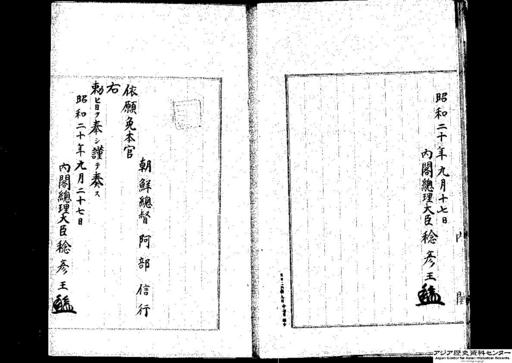 昭和二十年九月十七日
内閣總理大臣稔彦王
朝鮮總督阿部信行
依願免本官
右
勅旨ヲ奉シ謹テ奏ス
昭和二十年九月二十七日
内閣總理大臣稔彦王
内閣
アジア歴史資料センター
Japan Center for Asian Historical Records